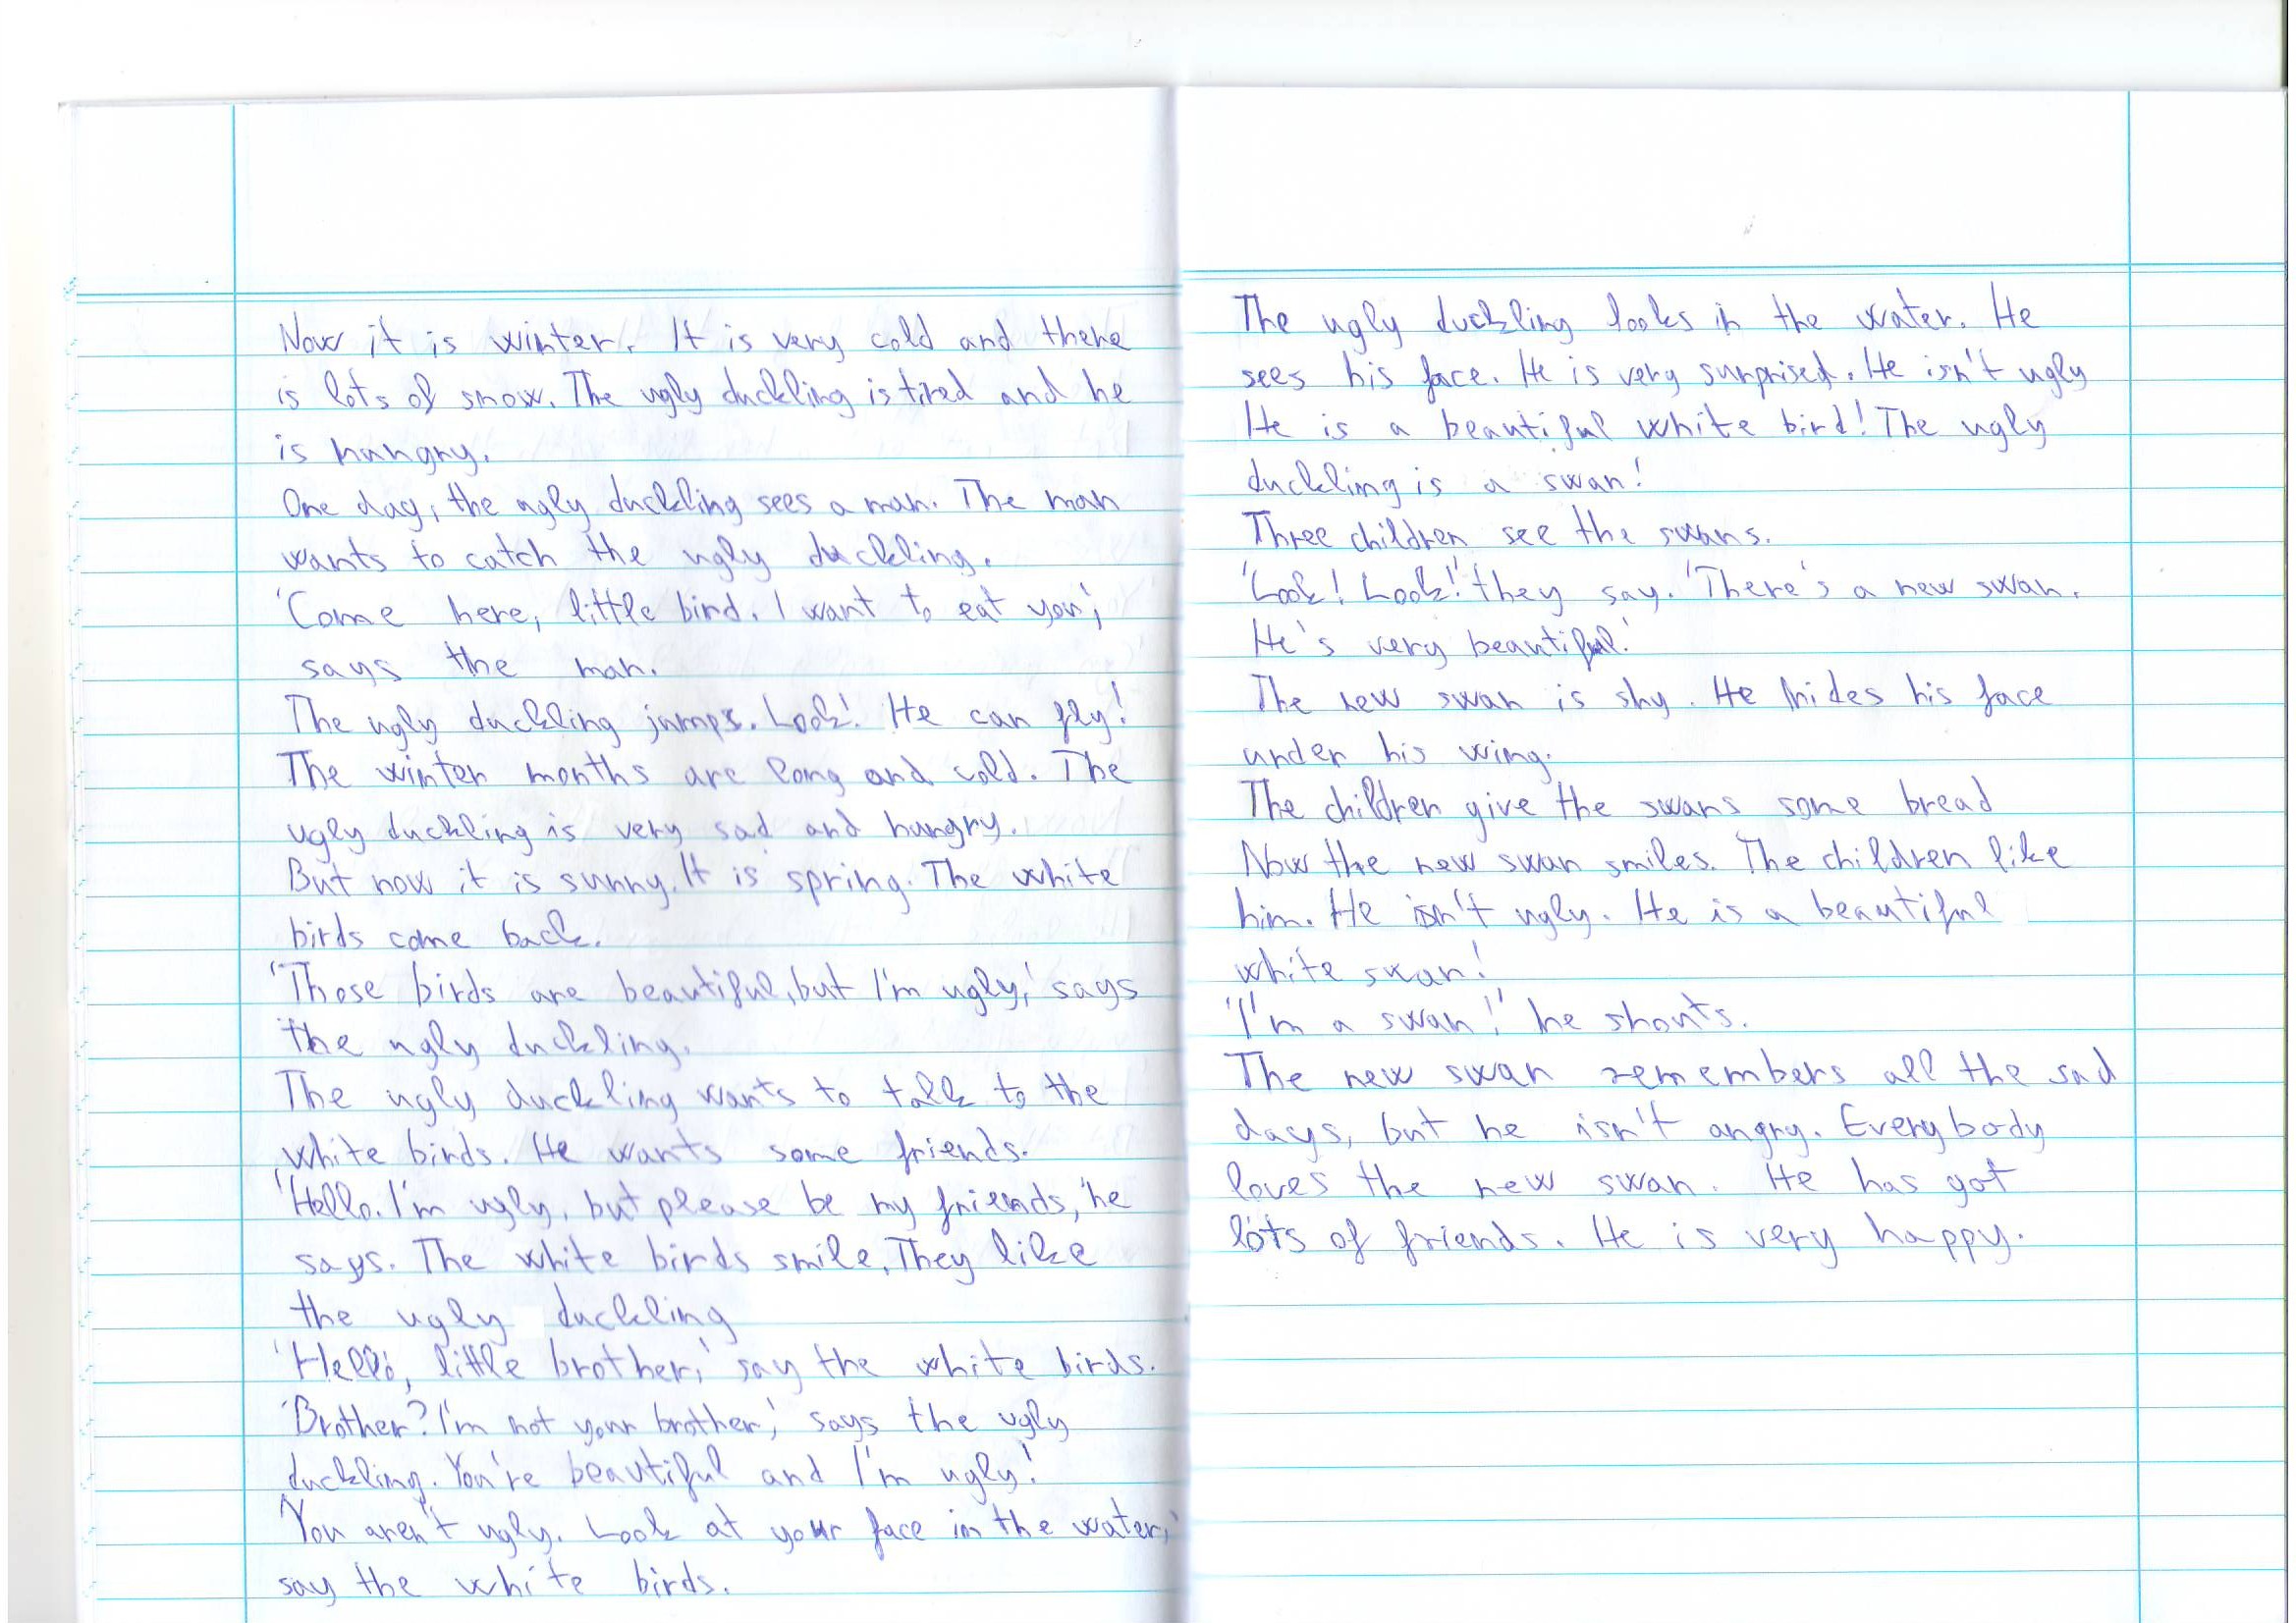 Now it is winter. It is very cold and there
is lots of snow. The ugly duckling is tired and he
is hungry.
One day, the ugly duckling sees a man. The man
wants to catch the ugly duckling.
'Come here, little bird. I want to eat you,'
says the man.
The ugly duckling jumps. Look! He can fly!
The winter months are long and cold. The
ugly duckling is very sad and hungry.
But now it is sunny. It is spring. The white
birds come back.
'Those birds are beautiful, but I'm ugly,' says
the ugly duckling.
The ugly duckling wants to talk to the
white birds. He wants some friends.
'Hello. I'm ugly, but please be my friends,' he
says. The white birds smile. They like
the ugly duckling
'Hello, little brother,' say the white birds.
'Brother? I'm not your brother,' says the ugly
duckling. You're beautiful and I'm ugly!'
'You aren't ugly. Look at your face in the water,'
say the white birds.
The ugly duckling looks in the water. He
sees his face. He is very surprised. He isn't ugly
He is a beautiful white bird! The ugly
duckling is a swan!
Three children see the swans.
'Look! Look!' they say. 'There's a new swan.
He's very beautiful.'
The new swan is shy. He hides his face
under his wing.
The children give the swans some bread
Now the new swan smiles. The children like
him. He isn't ugly. He is a beautiful
white swan!
'I'm a swan!' he shouts.
The new swan remembers all the sad
days, but he isn't angry. Everybody
loves the new swan. He has got
lots of friends. He is very happy.